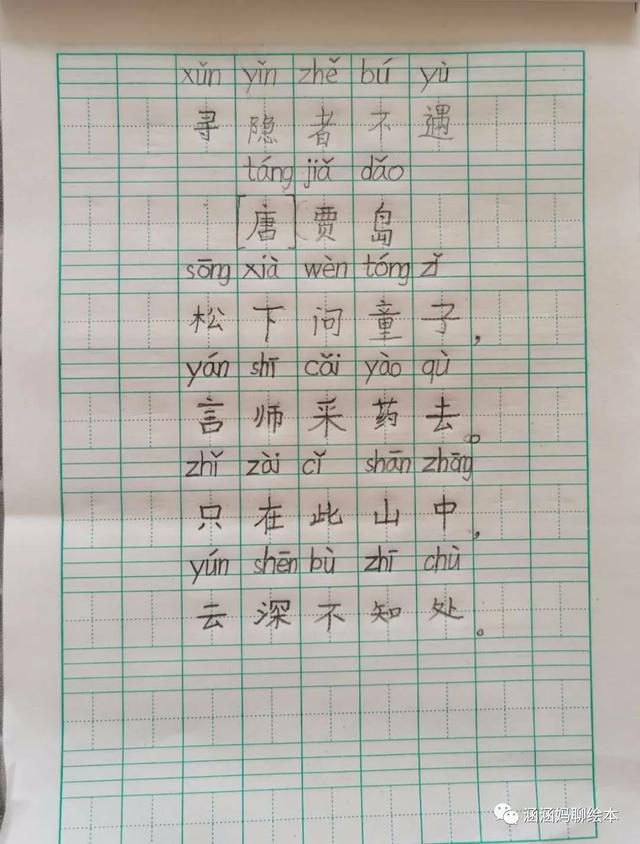 xǔn yǐn zhě bú yù
寻隐者不遇
táng jiǎ dǎo
[唐]贾岛
sōng xià wèn tóng zǐ
松下问童子,
yán shī cǎi yào qù
言师采药去。
zhǐ zài cǐ shān zhāng
只在此山中,
yún shēn bù zhī chù
云深不知处。
涵涵妈聊绘本